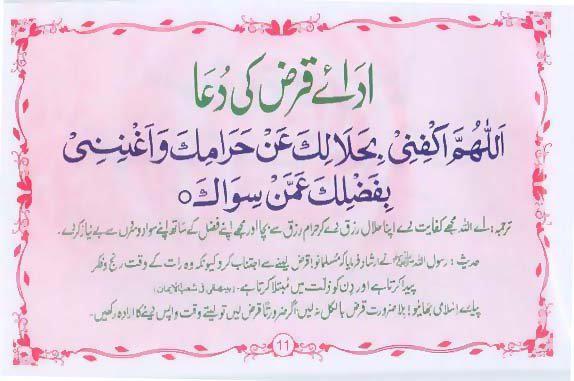 ادائے قرض کی دُعا
اَللّٰهُمَّ اكْفِنِیْ بِحَلَالِكَ عَنْ حَرَامِكَ وَاَغْنِنِیْ
بِفَضْلِكَ عَمَّنْ سِوَاكَ ○
ترجمہ: اے اللہ مجھے کفایت دے اپنا حلال رزق دے کر حرام رزق سے بچا اور مجھے اپنے فضل کے ساتھ اپنے سوا دوسروں سے بے نیاز کردے۔
حدیث: رسول اللہ ﷺ نے ارشاد فرمایا کہ مسلمانو! قرض لینے سے اجتناب کرو کیونکہ وہ رات کے وقت رنج و فکر
پیدا کرتا ہے اور دِن کو ذِلّت میں مُبتلا کرتا ہے۔ (بیھقی فی شعب الایمان)
پیارے اسلامی بھائیو! بلا ضرورت قرض بالکل نہ لیں اگر ضرورتاً قرض لیں تو لیتے وقت واپس دینے کا ارادہ رکھیں۔
11